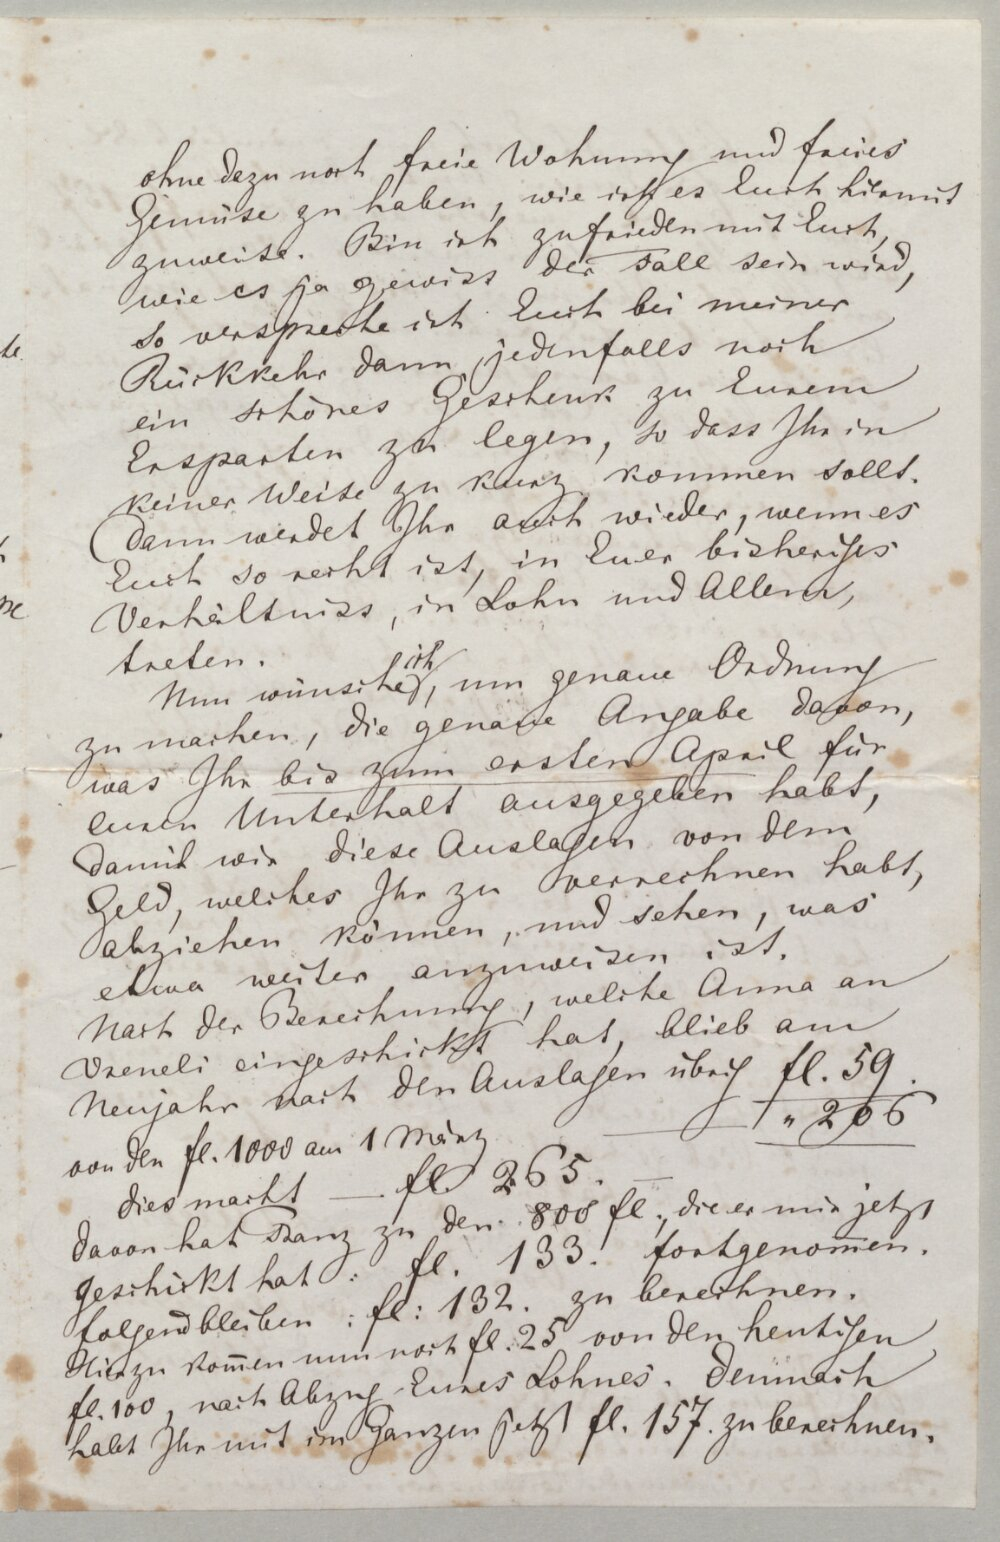 ohne dazu noch freie Wohnung und freies
Gemüse zu haben, wie ich es Euch hiermit
zuweise. Bin ich zufrieden mit Euch,
wie es ja gewiss der Fall sein wird,
so verspreche ich Euch bei meiner
Rückkehr dann jedenfalls noch
ein schönes Geschenk zu Eurem
Ersparten zu legen, so dass Ihr in
keiner Weise zu kurz kommen sollt.
Dann werdet Ihr auch wieder, wenn es
Euch so recht ist, in Euer bisheriges
Verhältniss, in Lohn und Allem,
treten.
Nun wünsche ich, um genaue Ordnung
zu machen, die genaue Angabe davon,
was Ihr bis zum ersten April für
euren Unterhalt ausgegeben habt,
damit wir diese Auslagen von dem
Geld, welches Ihr zu verrechnen habt,
abziehen können, und sehen, was
etwa weiter anzuweisen ist.
Nach der Berechnung, welche Anna an
Vreneli eingeschickt hat, blieb am
Neujahr nach den Auslagen übrig fl. 59.
von den fl. 1000 am 1 März — " 206
dies macht — fl. 265. —
davon hat Franz zu den 800 fl., die er mir jetzt
geschickt hat : fl. 133. fortgenom̄en.
folgend bleiben : fl: 132. zu berechnen.
Hierzu kom̄en nun noch fl. 25 von den heutigen
fl. 100, nach Abzug Eures Lohnes. Demnach
habt Ihr mit im Ganzen jetzt fl. 157. zu berechnen.